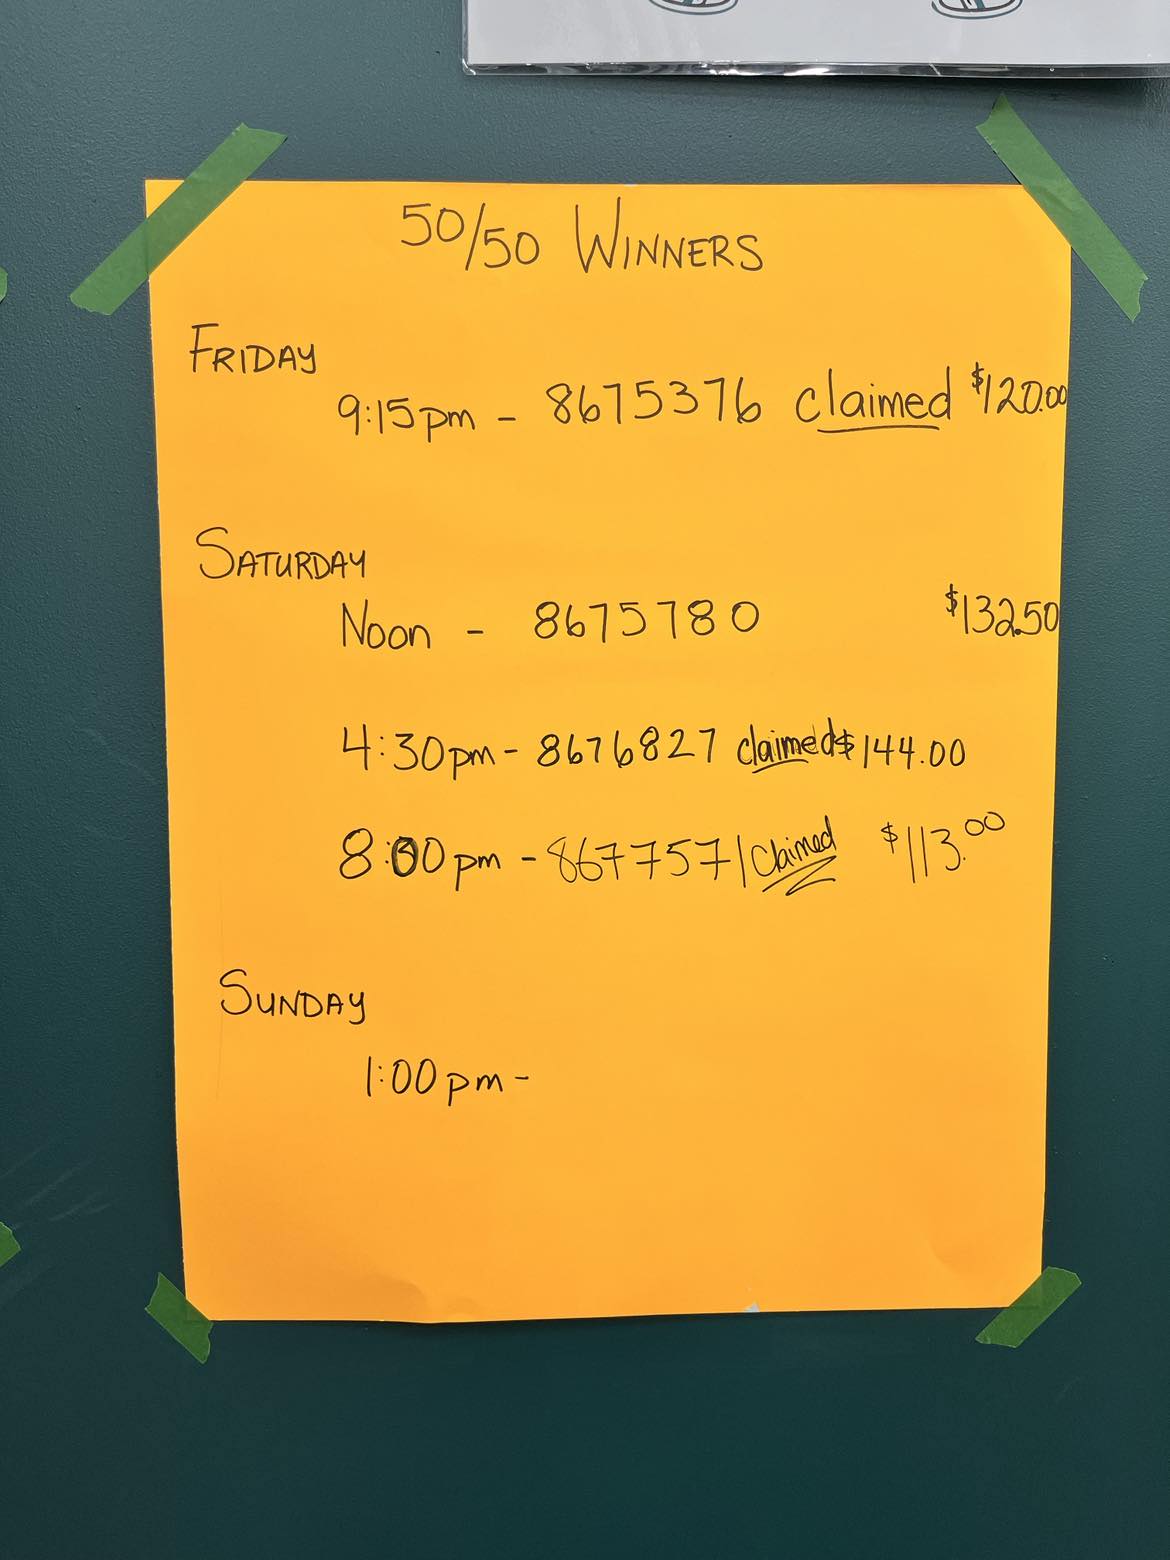 50/50 WINNERS
FRIDAY
9:15pm - 8675376 claimed $120.00
SATURDAY
Noon - 8675780 $132.50
4:30pm - 8676827 claimed $144.00
8:00pm - 8677571 Claimed $113.00
SUNDAY
1:00pm -